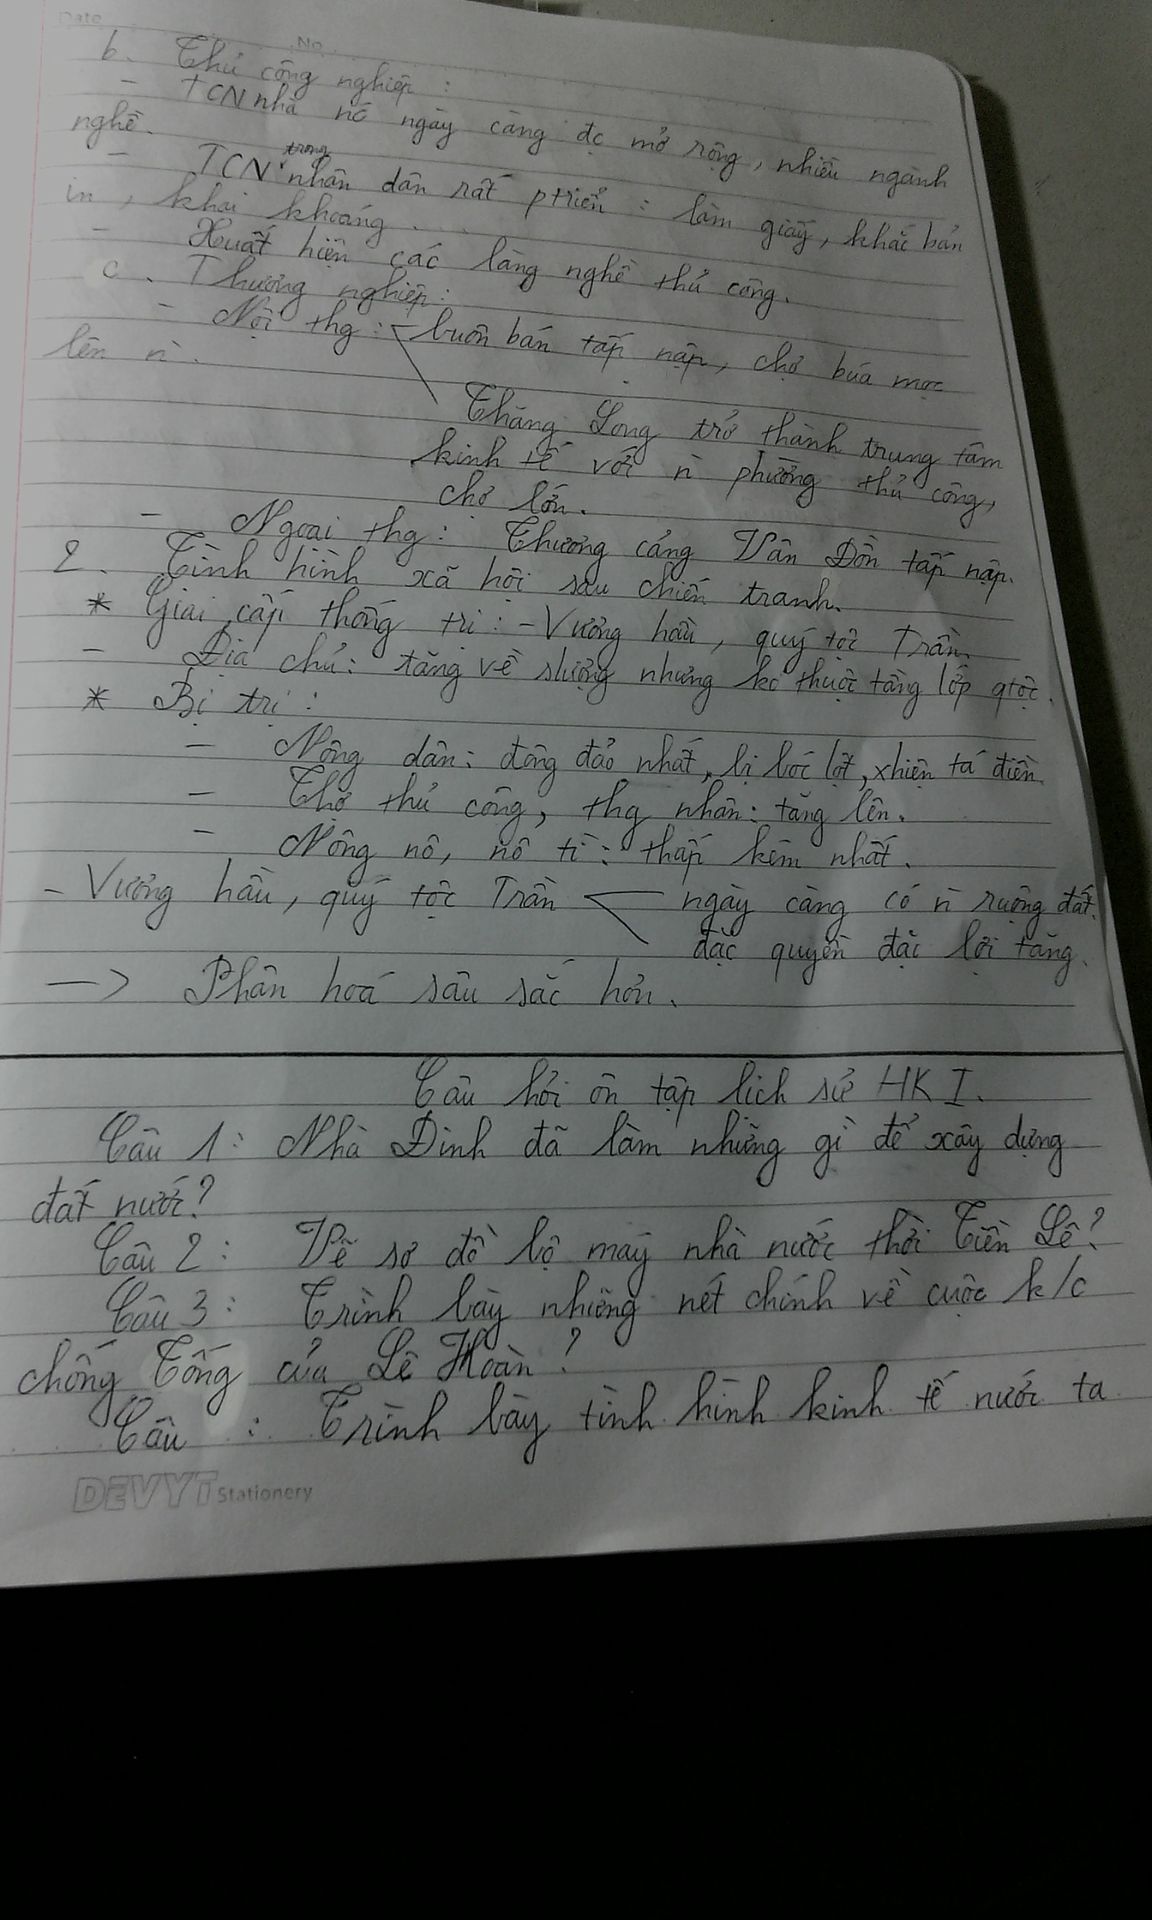 Date
No
b. Thủ công nghiệp :
- TCN nhà nc ngày càng đc mở rộng, nhiều ngành
nghề.
- TCN trong nhân dân rất ptriển : làm giấy, khắc bản
in, khai khoáng...
- Xuất hiện các làng nghề thủ công.
c. Thương nghiệp :
- Nội thg : buôn bán tấp nập, chợ búa mọc
lên ǹ.
Thăng Long trở thành trung tâm
kinh tế với ǹ phường thủ công,
chợ lớn.
- Ngoại thg : Thương cảng Vân Đồn tấp nập.
2. Tình hình xã hội sau chiến tranh.
* Giai cấp thống trị : - Vương hầu, quý tộc Trần.
- Địa chủ : tăng về slượng nhưng ko thuộc tầng lớp qtộc.
* Bị trị :
- Nông dân : đông đảo nhất, bị bóc lột, xhiện tá điền.
- Thợ thủ công, thg nhân : tăng lên.
- Nông nô, nô tì : thấp kém nhất.
- Vương hầu, quý tộc Trần ngày càng có ǹ ruộng đất.
đặc quyền đặc lợi tăng.
—> Phân hoá sâu sắc hơn.
Câu hỏi ôn tập lịch sử HK I.
Câu 1 : Nhà Đinh đã làm những gì để xây dựng
đất nước?
Câu 2 : Vẽ sơ đồ bộ máy nhà nước thời Tiền Lê?
Câu 3 : Trình bày những nét chính về cuộc k/c
chống Tống của Lê Hoàn?
Câu : Trình bày tình hình kinh tế nước ta
DEVYT Stationery